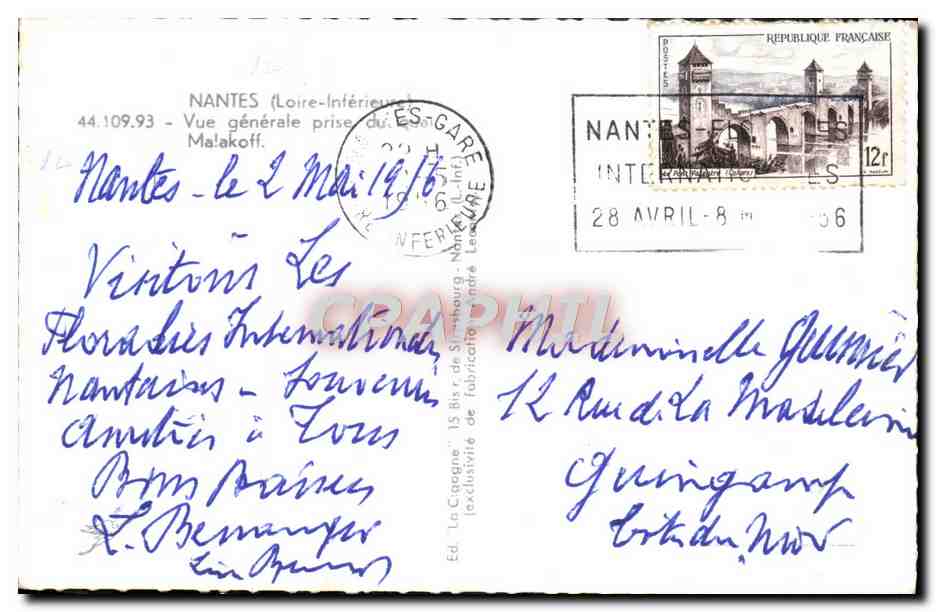 NANTES (Loire-Inférieure)
44.109.93 - Vue générale prise du Quai
Malakoff.
Nantes - le 2 Mai 1956
Visitons Les
Floralies Internationales
Nantaises - Souvenirs
Amitiés à Tous
Bons Baisers
L. Bessanger
NANTES-GARE
LOIRE INFERIEURE
Ed. "La Cigogne" 15 Bis r. de Strasbourg - Nantes (L.-Inf.)
(exclusivité de fabrication André Leconte)
CPAPHIL
REPUBLIQUE FRANÇAISE
POSTES
12F
Le Pont Valentré (Cahors)
NANTES-FLORALIES
INTERNATIONALES
28 AVRIL-8 MAI 1956
Mademoiselle
12 Rue de La Madeleine
Guingamp
Côtes du Nord